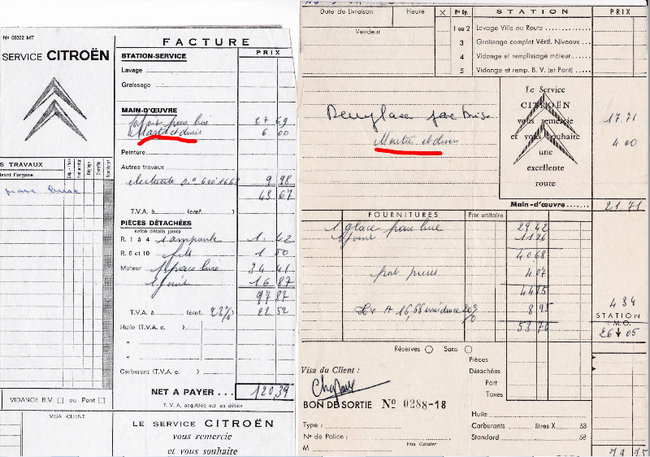 Nº 08022 MT
SERVICE CITROËN
FACTURE
STATION-SERVICE
PRIX
Lavage
Graissage
MAIN-D'ŒUVRE
27 69
Mastic et divers 6 00
Peinture
Autres travaux
9 98
43 67
T.V.A. à (cert. )
PIÈCES DÉTACHÉES
selon détails joints
R. 1 à 4 1 ampoule 1. 42
R. 5 et 10 1 50
Moteur 34 41
1 joint 16 87
97 87
T.V.A. à (coef. 23%) 22 52
Huile (T.V.A. c. )
Carburant (T.V.A. c. )
NET A PAYER 120,39
T.V.A. acquittée sur les débits
S TRAVAUX
pare Brise
VIDANGE B.V. ou Pont
VISA CLIENT
LE SERVICE CITROËN
vous remercie
et vous souhaite
Date de Livraison
Heure
Vendeur
X
STATION
PRIX
1 ou 2 Lavage Ville ou Route
3 Graissage complet Vérif. Niveaux
4 Vidange et remplissage moteur
5 Vidange et remp. B. V. (et Pont)
glace pare Brise 17 71
Mastic et divers 4 00
Le Service
CITROËN
vous remercie
et vous souhaite
une
excellente
route
Main-d'œuvre 21 71
FOURNITURES
Prix unitaire
1 glace pare brise 29 42
1 joint 11 26
40 68
port 4 07
44 85
8 95
53 70
4 34
STATION
M.O.
26 05
Réserves Sans
Visa du Client :
Pièces
Détachées
Port
Taxes
BON DE SORTIE Nº 0288-18
Huile
Type :
Carburants litres X 53
Nº de Police :
Standard 58
M